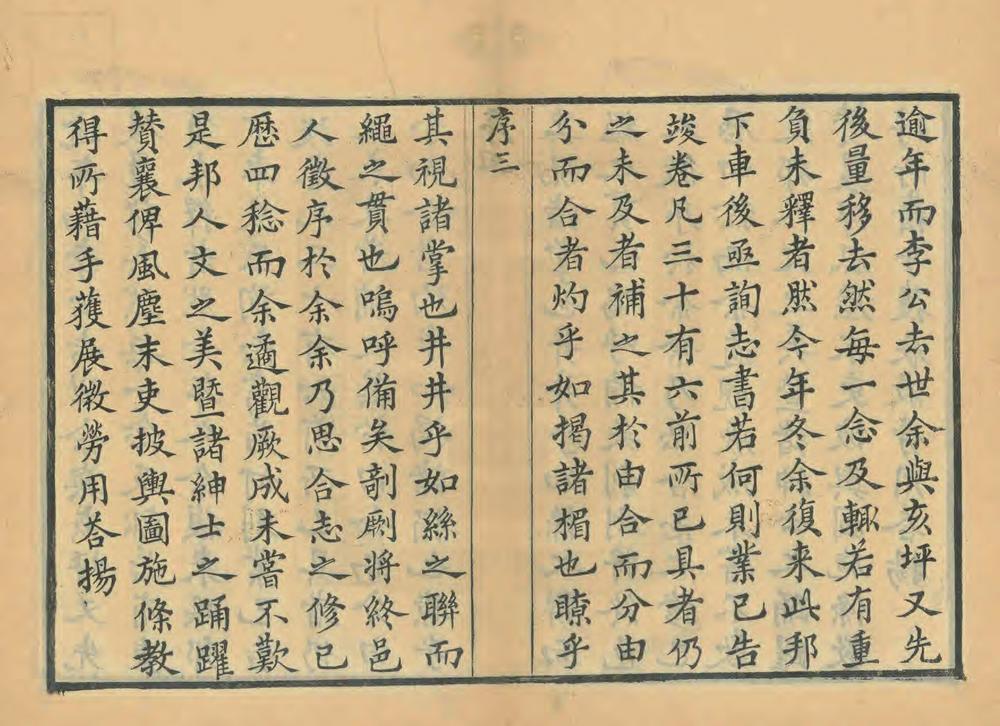 逾年而李公去世余與亥坪又先
後量移去然每一念及輙若有重
負未釋者然今年冬余復来此邦
下車後亟詢志書若何則業已告
竣卷凡三十有六前所已具者仍
之未及者補之其於由合而分由
分而合者灼乎如揭諸楣也瞭乎
序三
其視諸掌也井井乎如絲之聯而
繩之貫也嗚呼備矣剞劂將終邑
人徵序於余余乃思合志之修已
歷四稔而余遹觀厥成未嘗不歎
是邦人文之美暨諸紳士之踊躍
賛襄俾風塵末吏披輿圖施條教
得所藉手獲展微勞用荅揚